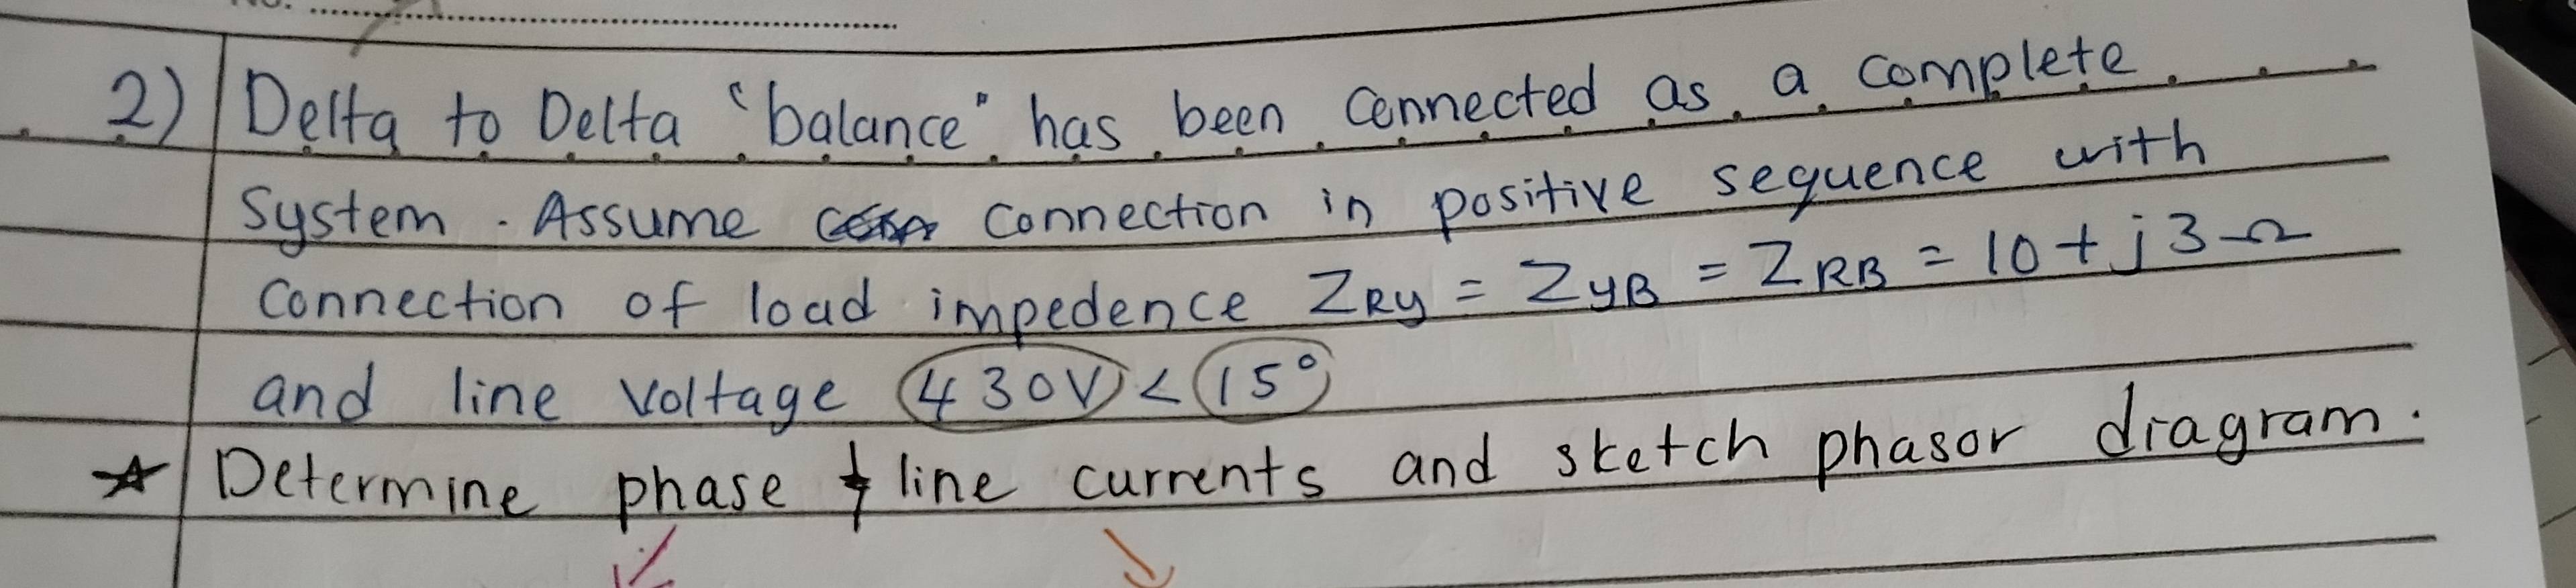 2) Delta to Delta "balance" has been connected as a complete
system. Assume connection in positive sequence with
connection of load impedence ZRY = ZYB = ZRB = 10 + j3Ω
and line voltage 430V < 15°
☆ Determine phase & line currents and sketch phasor diagram.